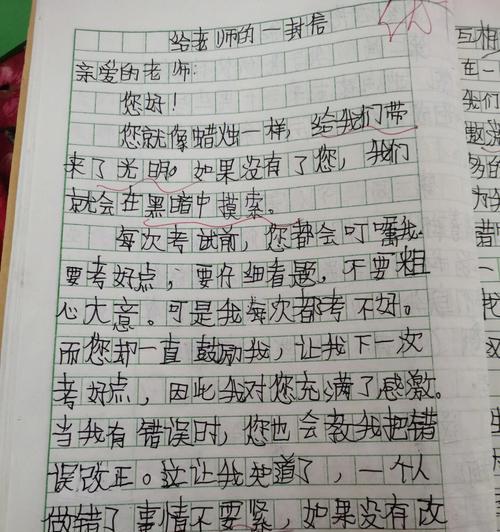 给老师的一封信
亲爱的老师:
您好!
您就像蜡烛一样,给我们带
来了光明。如果没有了您,我们
就会在黑暗中摸索。
每次考试前,您都会叮嘱我
要考好点,要仔细看题,不要粗
心大意。可是我每次都考不好。
而您却一直鼓励我,让我下一次
考好点,因此我对您充满了感激。
当我有错误时,您也会教我把错
误改正。这让我知道了,一个人
做错了事情不要紧,如果没有改
互相
在一
我们
多的